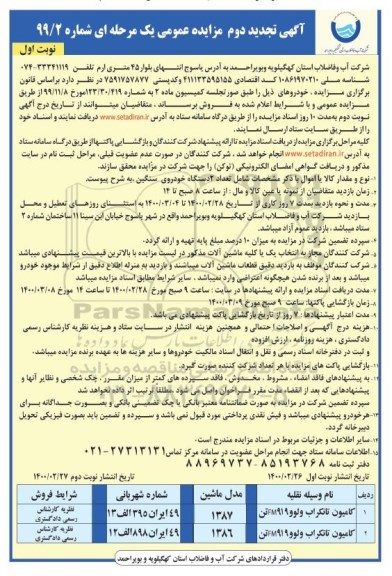 آگهی تجدید دوم مزایده عمومی یک مرحله ای شماره ۹۹/۲
نوبت اول
شرکت آب وفاضلاب استان کهگیلویه وبویراحمد به آدرس یاسوج انتهای بلوار ۴۵ متری ارم تلفن ۳۳۳۴۱۱۱۹-۰۷۴
شناسه ملی ۱۰۸۶۱۹۷۰۲۱۰ کد اقتصادی ۴۱۱۱۳۳۵۹۵۱۵۵ وکدپستی ۷۵۹۱۷۵۷۸۷۷ در نظر دارد براساس قانون
برگزاری مزایده ، خودروهای ذیل را طبق صورتجلسه کمیسیون ماده ۲ به شماره ۱۲۳/۳۰/۴۱۹مورخ ۹۹/۱۱/۸ از طریق
مزایده عمومی و با شرایط اعلام شده به فروش برساند ، متقاضیان میتوانند از تاریخ درج آگهی
نوبت دوم به‌مدت ۱۰ روز اسناد مزایده را از طریق درگاه سامانه ستاد به آدرس www.setadiran.ir دریافت نمایند و اسناد خود
را از طریق سایت ستاد ارسال نمایند.
کلیه مراحل برگزاری مزایده از دریافت اسناد مزایده تا ارائه پیشنهاد شرکت کنندگان و بازگشایی پاکتها از طریق درگاه سامانه ستاد
به آدرس www.setadiran.ir انجام خواهد شد . شرکت کنندگان در صورت عدم عضویت قبلی، مراحل ثبت نام در سایت
مذکور و دریافت گواهی امضای الکترونیکی (توکن) را جهت شرکت در مزایده محقق سازند.
۱- نوع و مقدار کالا یا اموال با ذکر مشخصات شامل تعداد ۲دستگاه خودروی سنگین ،به شرح پیوست.
۲- زمان بازدید متقاضیان از نمونه یا عین کالا و مال : از ساعت ۸ صبح تا ۱۴
۳- مدت و نحوه بازدید بمدت ۷ روز کاری از تاریخ ۱۴۰۰/۰۲/۲۸ تا ۱۴۰۰/۰۳/۰۴ به استثنای روزهای تعطیل و محل
بازدید شرکت آب و فاضلاب استان کهگیلویه وبویراحمد واقع در شهر یاسوج خیابان ابن سینا ۱۱ ساختمان شماره ۲
ستاد میباشد . بازدید عموم آزاد میباشد.
۴- سپرده تضمین شرکت در مزایده به میزان ۱۰ درصد مبلغ پایه تهیه و ارائه گردد.
۵- شرکت کنندگان مجاز به انتخاب یک یا کلیه ماشین آلات مذکور در لیست مزایده با بالاترین قیمت پیشنهادی میباشد
۶- شرکت کنندگان موظف به بازدید دقیق قطعات ماشین آلات میباشند و بازدید به منزله اطلاع دقیق از شرایط موجود خودرو
میباشد و بعد از برنده شدن هیچگونه اعتراضی وارد نمیباشد . سایر شرایط مطابق اسناد مزایده میباشد
۷- مدت دریافت اسناد مزایده و ارائه پیشنهادها در سایت : ساعت ۹ صبح مورخ ۱۴۰۰/۰۲/۲۸ تا ساعت ۱۴ مورخ ۱۴۰۰/۰۳/۰۸
۸- زمان بازگشایی پاکتها: ساعت ۹ صبح مورخ ۱۴۰۰/۰۳/۰۹
۹- مدت اعتبار پیشنهادها : ۷ روز از تاریخ بازگشایی پاکت پیشنهادی می باشد
۱۰- هزینه درج آگهی و اصلاحات احتمالی و همچنین هزینه انتشار در سایت ستاد و هزینه نظریه کارشناس رسمی
دادگستری ، هزینه روزنامه ، ارزش افزوده
و ثبت در دفترخانه اسناد رسمی و نقل و انتقال اسناد مالکیت خودروها و سایر هزینه ها به عهده برنده مزایده میباشد.
۱۱- بازگشایی پاکت های مزایده با هر تعداد شرکت کننده صورت گیرد.
۱۲- به پیشنهادهای فاقد امضاء ، مشروط ، مخدوش ، فاقد سپرده های کمتر از میزان مقرر ، چک شخصی و نظایر آنها و
پیشنهادهایی که بعد از انقضاء مدت مقرر فراخوان واصل می شود مطلقا ترتیب اثر داده نخواهد شد.
سپرده تضمین شرکت در مزایده به صورت ضمانتنامه معتبر بانکی یا چک تضمینی بانکی و بصورت جداگانه برای
۱۳- هرخودرو پیشنهادی میباشد و فیش نقدی پرداختی مورد قبول نمی باشد و سپرده و تضمین باید بصورت فیزیکی تحویل
دبیرخانه گردد.
۱۴- سایر اطلاعات و جزئیات مربوط در اسناد مزایده مندرج است.
۱۵- اطلاعات سامانه ستاد جهت انجام مراحل عضویت در سامانه مرکز تماس ۲۷۳۱۳۱۳۱-۰۲۱
دفتر ثبت نامه ۸۵۱۹۳۷۶۸ - ۸۸۹۶۹۷۳۷
تاریخ انتشار نوبت اول ۱۴۰۰/۰۲/۲۶ تاریخ انتشار نوبت دوم ۱۴۰۰/۰۲/۲۷
ردیف نام وسیله نقلیه مدل ماشین شماره شهربانی شرایط فروش
۱ کامیون تانکراب ولوو FM۹۱۹تن ۱۳۸۷ ۴۹ ایران ۳۹۵ الف۱۳ نظریه کارشناس رسمی دادگستری
۲ کامیون تانکراب ولوو FM۹۱۹تن ۱۳۸۶ ۴۹ایران ۸۹۸ الف۱۲ نظریه کارشناس رسمی دادگستری
دفتر قراردادهای شرکت آب و فاضلاب استان کهگیلویه و بویراحمد